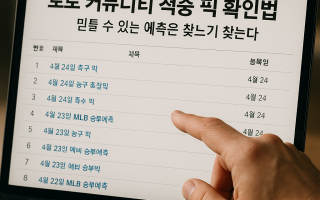 커뮤니티 적중 픽 확인법
믿틀 수 있는 예측은 찾느기 찾는다
제목 제목
1 4월 24일 축구 픽 4월 24
2 4월 24일 농구 4월 24
3 4월 24일 픽 4월 24
4 4월 23일 MLB 승부예측 4월 24
5 4월 23일 농구 픽
6 4월 승부예측
7 4월 23일 승부픽
8 4월 22일 MLB 승부예측